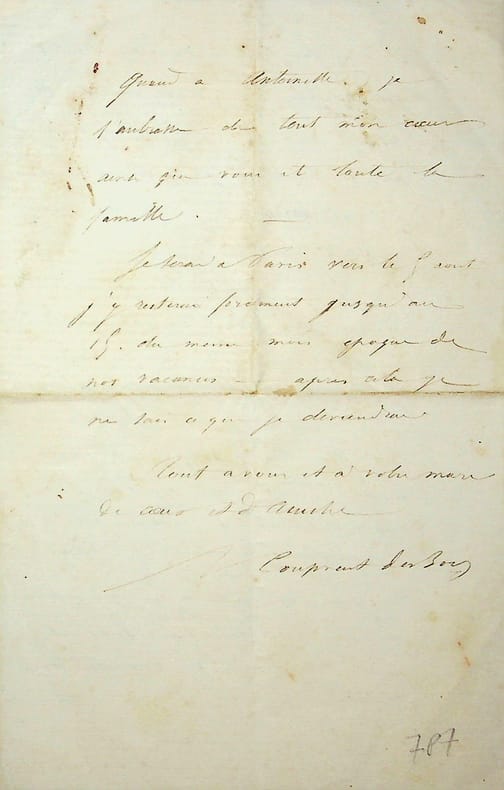 Quand a Antoinette. je
l'embrasse de tout mon cœur
ainsi que vous et toute la
famille. —
Je serai a Paris vers le 5 aout
j'y resterai forcement jusqu'au
15. du meme mois epoque de
nos vacances — apres cela je
ne sais ce que je deviendrai
Tout a vous et a votre mari
de cœur et d'
Coupvent des Bois
787